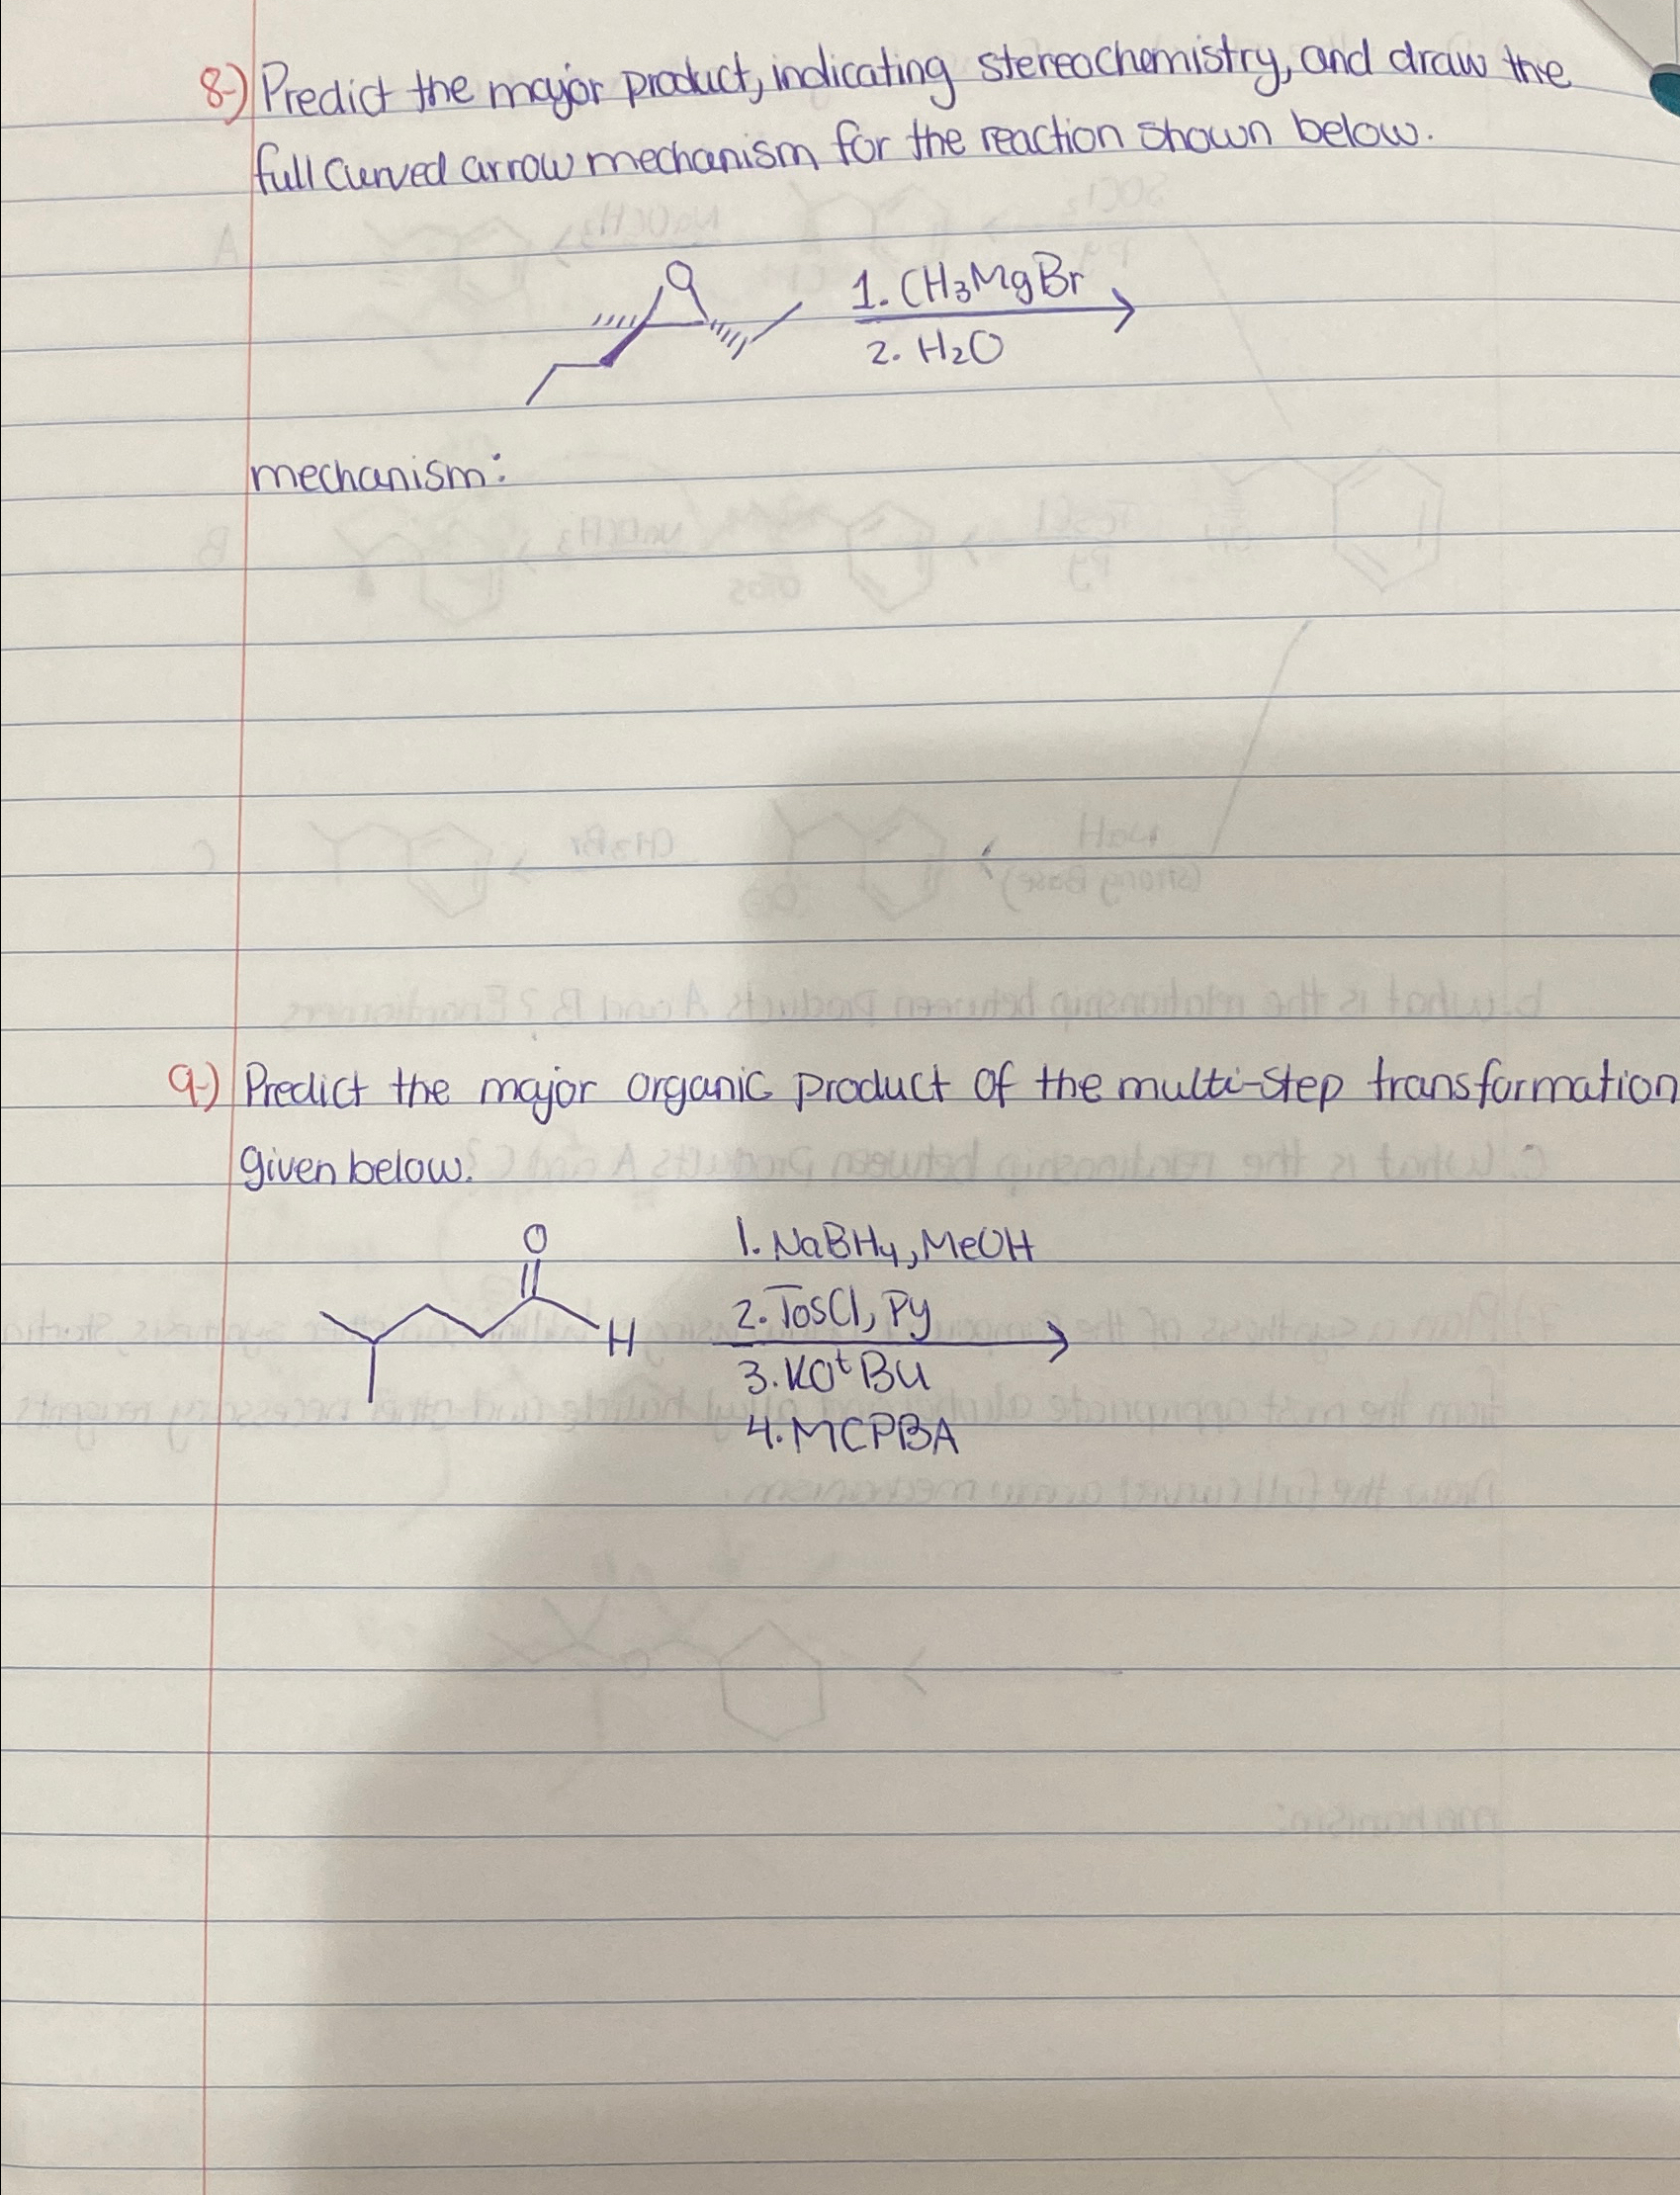 8.) Predict the major product, indicating stereochemistry, and draw the
full curved arrow mechanism for the reaction shown below.
O
1. CH₃MgBr
2. H₂O
mechanism:
9.) Predict the major organic product of the multi-step transformation
given below.
O
H
1. NaBH₄, MeOH
2. TosCl, Py
3. KOᵗBu
4. MCPBA